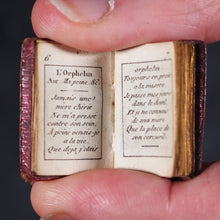 6
L'Orphelin
Air
Jamais une
mere chérie
Ne m'a pressé
contre son sein.
A peine
a la vie,
Que deja j'étais
orphelin
Toujours en
a la misere
Je passe mes jours
dans le deuil.
Et je ne connais
de ma mere
Que la place de
son cercueil.